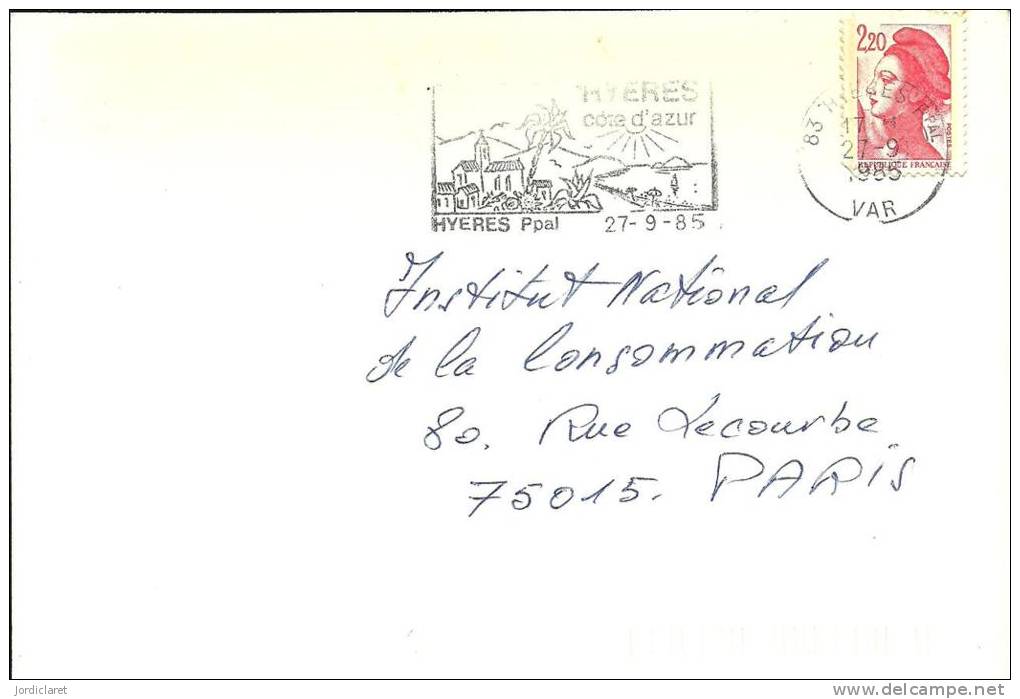 HYERES
côte d'azur
HYERES Ppal 27-9-85
2,20
POSTES
REPUBLIQUE FRANCAISE
83 HYERES PPAL
17 H
27-9
1985
VAR
Institut National
de la Consommation
80. Rue Lecourbe
75015. PARIS
jordiclaret
www.delcampe.net